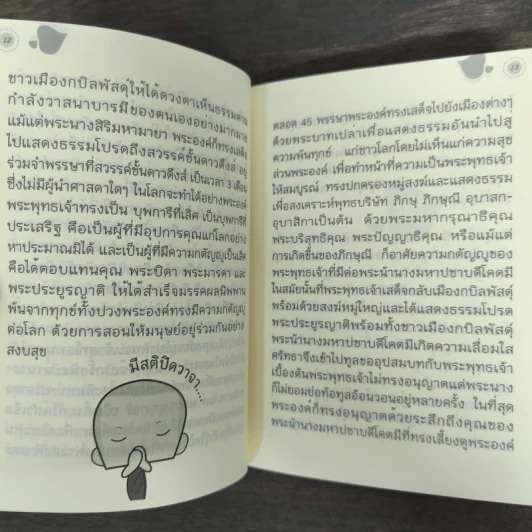 12
ชาวเมืองกบิลพัสดุ์ให้ได้ดวงตาเห็นธรรมตาม
กำลังวาสนาบารมีของตนเองอย่างมากมาย
แม้แต่พระนางสิริมหามายา พระองค์ก็ทรงเสด็จ
ไปแสดงธรรมโปรดถึงสวรรค์ชั้นดาวดึงส์ อยู่
ร่วมจำพรรษาที่สวรรค์ชั้นดาวดึงส์ เป็นเวลา 3 เดือน
ซึ่งไม่มีผู้นำศาสดาใดๆ ในโลกจะทำได้อย่างพระองค์
พระพุทธเจ้าทรงเป็น บุพการีที่เลิศ เป็นบุพการีที่
ประเสริฐ คือเป็นผู้ที่มีอุปการคุณแก่โลกอย่าง
หาประมาณมิได้ และเป็นผู้ที่มีความกตัญญูเป็นเลิศ
คือได้ตอบแทนคุณ พระบิดา พระมารดา และ
พระประยูรญาติ ให้ได้สำเร็จมรรคผลนิพพาน
พ้นจากทุกข์ทั้งปวงพระองค์ทรงมีความกตัญญู
ต่อโลก ด้วยการสอนให้มนุษย์อยู่ร่วมกันอย่าง
สงบสุข
มีสติปิดวาจา....
13
ตลอด 45 พรรษาพระองค์ทรงเสด็จไปยังเมืองต่างๆ
ด้วยพระบาทเปล่าเพื่อแสดงธรรมอันนำไปสู่
ความพ้นทุกข์ แก่ชาวโลกโดยไม่เห็นแก่ความสุข
ส่วนพระองค์ เพื่อทำหน้าที่ความเป็นพระพุทธเจ้า
ให้สมบูรณ์ ทรงปกครองหมู่สงฆ์และแสดงธรรม
เพื่อสงเคราะห์พุทธบริษัท ภิกษุ ภิกษุณี อุบาสก-
อุบาสิกาเป็นต้น ด้วยพระมหากรุณาธิคุณ
พระบริสุทธิคุณ พระปัญญาธิคุณ หรือแม้แต่
การเกิดขึ้นของภิกษุณี ก็อาศัยความกตัญญูของ
พระพุทธเจ้าที่มีต่อพระน้านางมหาปชาบดีโคตมี
ในสมัยนั้นที่พระพุทธเจ้าเสด็จกลับเมืองกบิลพัสดุ์
พร้อมด้วยสงฆ์หมู่ใหญ่และได้แสดงธรรมโปรด
พระประยูรญาติพร้อมทั้งชาวเมืองกบิลพัสดุ์
พระน้านางมหาปชาบดีโคตมีเกิดความเลื่อมใส
ศรัทธาจึงเข้าไปทูลขออุปสมบทกับพระพุทธเจ้า
เบื้องต้นพระพุทธเจ้าไม่ทรงอนุญาตแต่พระนาง
ก็ไม่ยอมย่อท้อทูลอ้อนวอนอยู่หลายครั้ง ในที่สุด
พระองค์ก็ทรงอนุญาตด้วยระลึกถึงคุณของ
พระน้านางมหาปชาบดีโคตมีที่ทรงเลี้ยงดูพระองค์